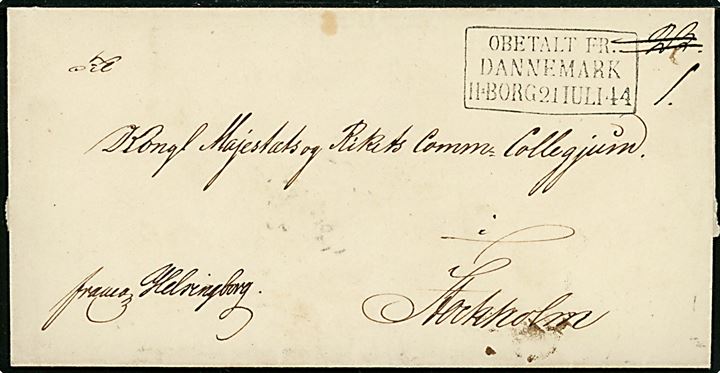 OBETALT FR.
DANNEMARK
H·BORG 21 JULI 44
1.
Til
Kongl Majestäts og Rikets Comm= Collegium.
i
franco Helsingborg.
Stockholm